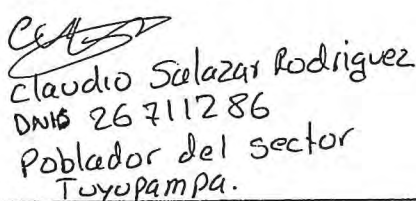 Claudio Salazar Rodriguez
DNI 26711286
Poblador del sector
Tuyupampa.